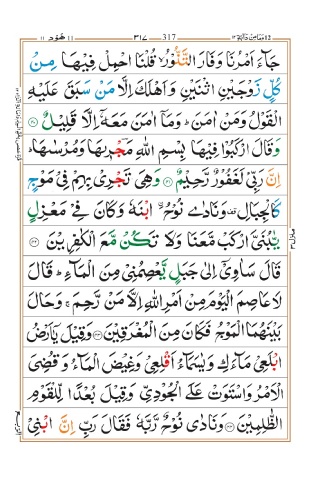 ۱۱ هُوْد ۱۱ ۳۱۷ 317
جَآءَ اَمْرُنَا وَفَارَ التَّنُّوْرُ ۙ قُلْنَا احْمِلْ فِيْهَا مِنْ
كُلٍّ زَوْجَيْنِ اثْنَيْنِ وَ اَهْلَكَ اِلَّا مَنْ سَبَقَ عَلَيْهِ
الْقَوْلُ وَمَنْ اٰمَنَ ؕ وَمَاۤ اٰمَنَ مَعَهٗۤ اِلَّا قَلِيْلٌ ﴿۴۰﴾
وَقَالَ ارْكَبُوْا فِيْهَا بِسْمِ اللّٰهِ مَجْرٖىهَا وَمُرْسٰىهَا ؕ
اِنَّ رَبِّيْ لَغَفُوْرٌ رَّحِيْمٌ ﴿۴۱﴾ وَهِيَ تَجْرِيْ بِهِمْ فِيْ مَوْجٍ
كَالْجِبَالِ ۟ وَنَادٰى نُوْحُ اۨبْنَهٗ وَكَانَ فِيْ مَعْزِلٍ
يّٰبُنَيَّ ارْكَبْ مَّعَنَا وَلَا تَكُنْ مَّعَ الْكٰفِرِيْنَ ﴿۴۲﴾
قَالَ سَاٰوِيْۤ اِلٰى جَبَلٍ يَّعْصِمُنِيْ مِنَ الْمَآءِ ؕ قَالَ
لَا عَاصِمَ الْيَوْمَ مِنْ اَمْرِ اللّٰهِ اِلَّا مَنْ رَّحِمَ ۚ وَحَالَ
بَيْنَهُمَا الْمَوْجُ فَكَانَ مِنَ الْمُغْرَقِيْنَ ﴿۴۳﴾ وَقِيْلَ يٰۤاَرْضُ
ابْلَعِيْ مَآءَكِ وَيٰسَمَآءُ اَقْلِعِيْ وَغِيْضَ الْمَآءُ وَقُضِيَ
الْاَمْرُ وَاسْتَوَتْ عَلَى الْجُوْدِيِّ وَقِيْلَ بُعْدًا لِّلْقَوْمِ
الظّٰلِمِيْنَ ﴿۴۴﴾ وَنَادٰى نُوْحٌ رَّبَّهٗ فَقَالَ رَبِّ اِنَّ ابْنِيْ